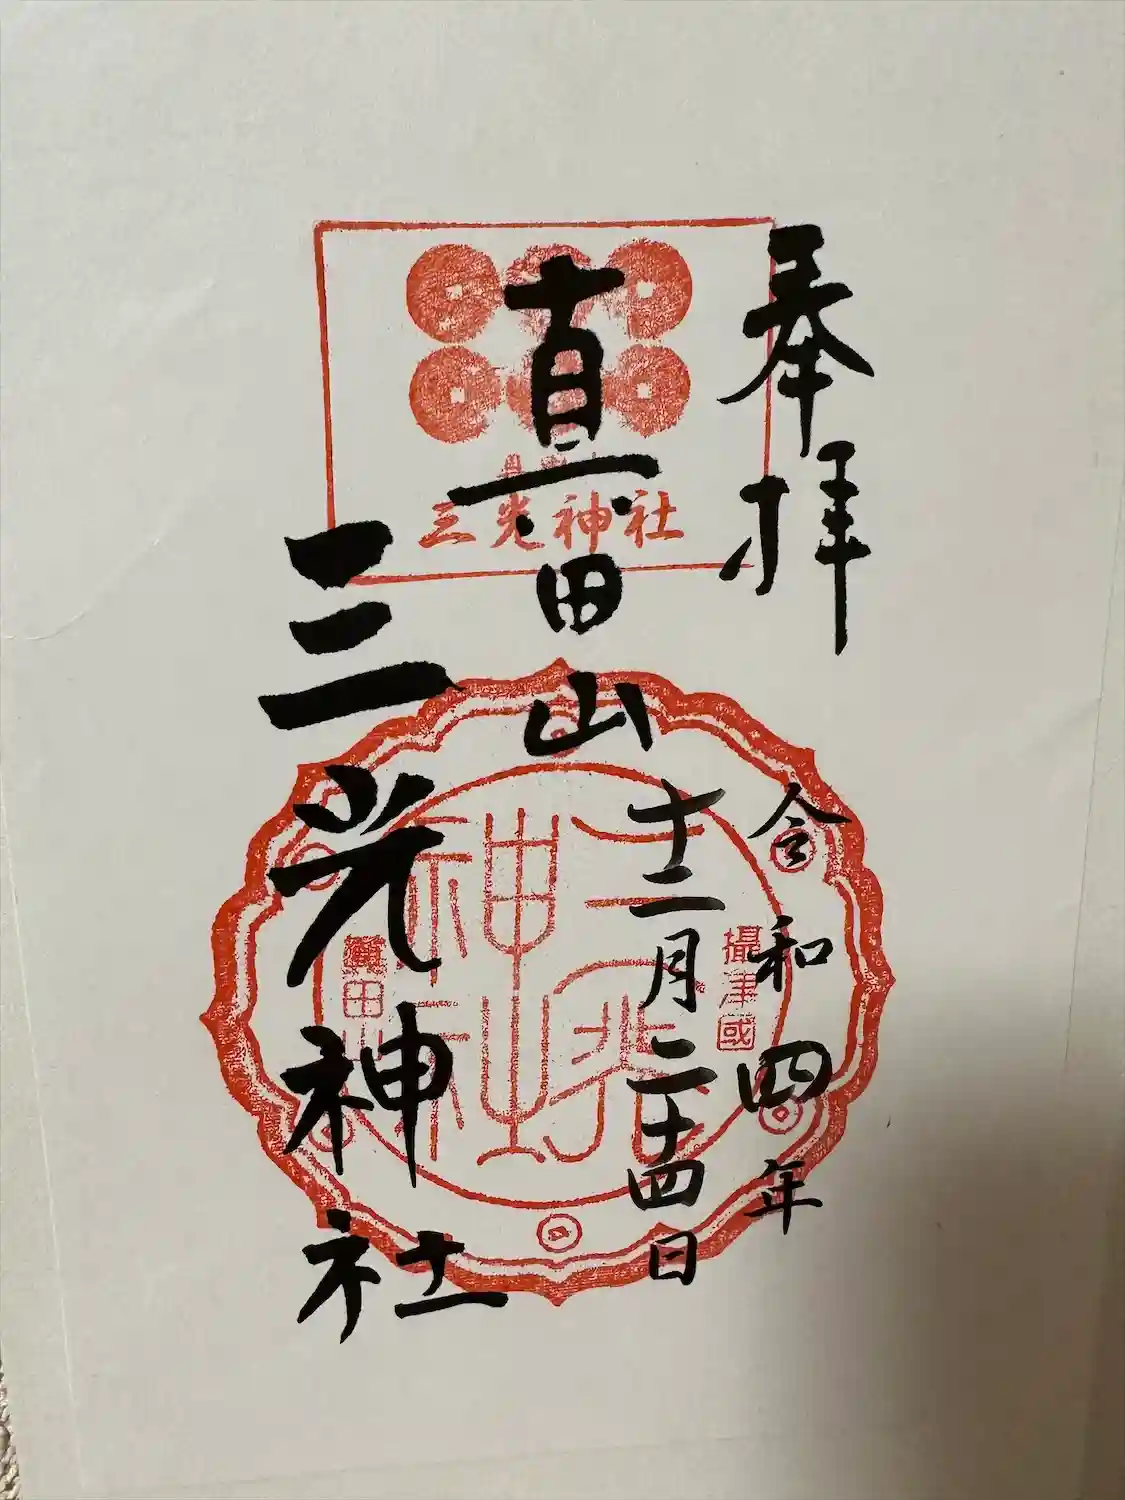 奉拝
令和四年
十二月二十四日
真田山
三光神社
三光神社
攝津國
三光
神社